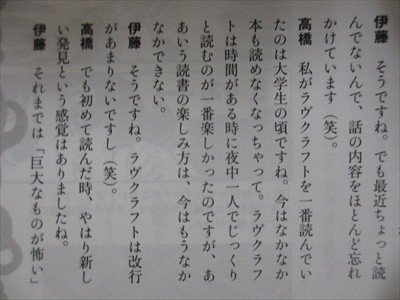 伊藤　そうですね。でも最近ちょっと読
んでないんで、話の内容をほとんど忘れ
かけています（笑）。
高橋　私がラヴクラフトを一番読んでい
たのは大学生の頃ですね。今はなかなか
本も読めなくなっちゃって。ラヴクラフ
トは時間がある時に夜中一人でじっくり
と読むのが一番楽しかったのですが、あ
あいう読書の楽しみ方は、今はもうなか
なかできない。
伊藤　そうですね。ラヴクラフトは改行
があまりないですし（笑）。
高橋　でも初めて読んだ時、やはり新し
い発見という感覚はありましたね。
伊藤　それまでは「巨大なものが怖い」